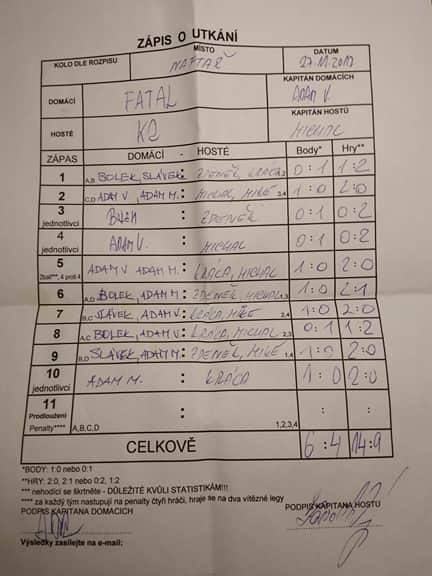 ZÁPIS O UTKÁNÍ
KOLO DLE ROZPISU MÍSTO NAFTAŘ DATUM 27.11.2017
DOMÁCÍ FATAL KAPITÁN DOMÁCÍCH ADAM V.
HOSTÉ K2 KAPITÁN HOSTŮ MICHAL
ZÁPAS DOMÁCÍ - HOSTÉ Body* Hry**
1 A,B BOLEK, SLÁVEK : ZDENĚK, KRÁCA 1,2 0:1 1:2
2 C,D ADAM V, ADAM M. : MICHAL, MIKE 3,4 1:0 2:0
3 jednotlivci : ZDENĚK 0:1 0:2
4 jednotlivci ADAM V. : MICHAL 0:1 0:2
5 4 proti 4 ADAM V ADAM M. : KRÁCA, MICHAL 1:0 2:0
6 A,D BOLEK, ADAM M : ZDENĚK, MICHAL 1,3 1:0 2:1
7 B,C SLÁVEK, ADAM V. : KRÁCA, MIKE 2,4 1:0 2:0
8 A,C BOLEK, ADAM V. : KRÁCA, MICHAL 2,3 0:1 1:2
9 B,D SLÁVEK, ADAM M : ZDENĚK, MIKE 1,4 1:0 2:0
10 jednotlivci ADAM M. : KRÁCA 1:0 2:0
11 Prodloužení Penalty**** A,B,C,D : 1,2,3,4 : :
CELKOVĚ 6:4 14:9
*BODY: 1:0 nebo 0:1
**HRY: 2:0, 2:1 nebo 0:2, 1:2
*** nehodící se škrtněte - DŮLEŽITÉ KVŮLI STATISTIKÁM!!!
**** za každý tým nastupují na penalty čtyři hráči, hraje se na dva vítězné legy
PODPIS KAPITÁNA DOMÁCÍCH PODPIS KAPITÁNA HOSTŮ
Výsledky zasílejte na e-mail: